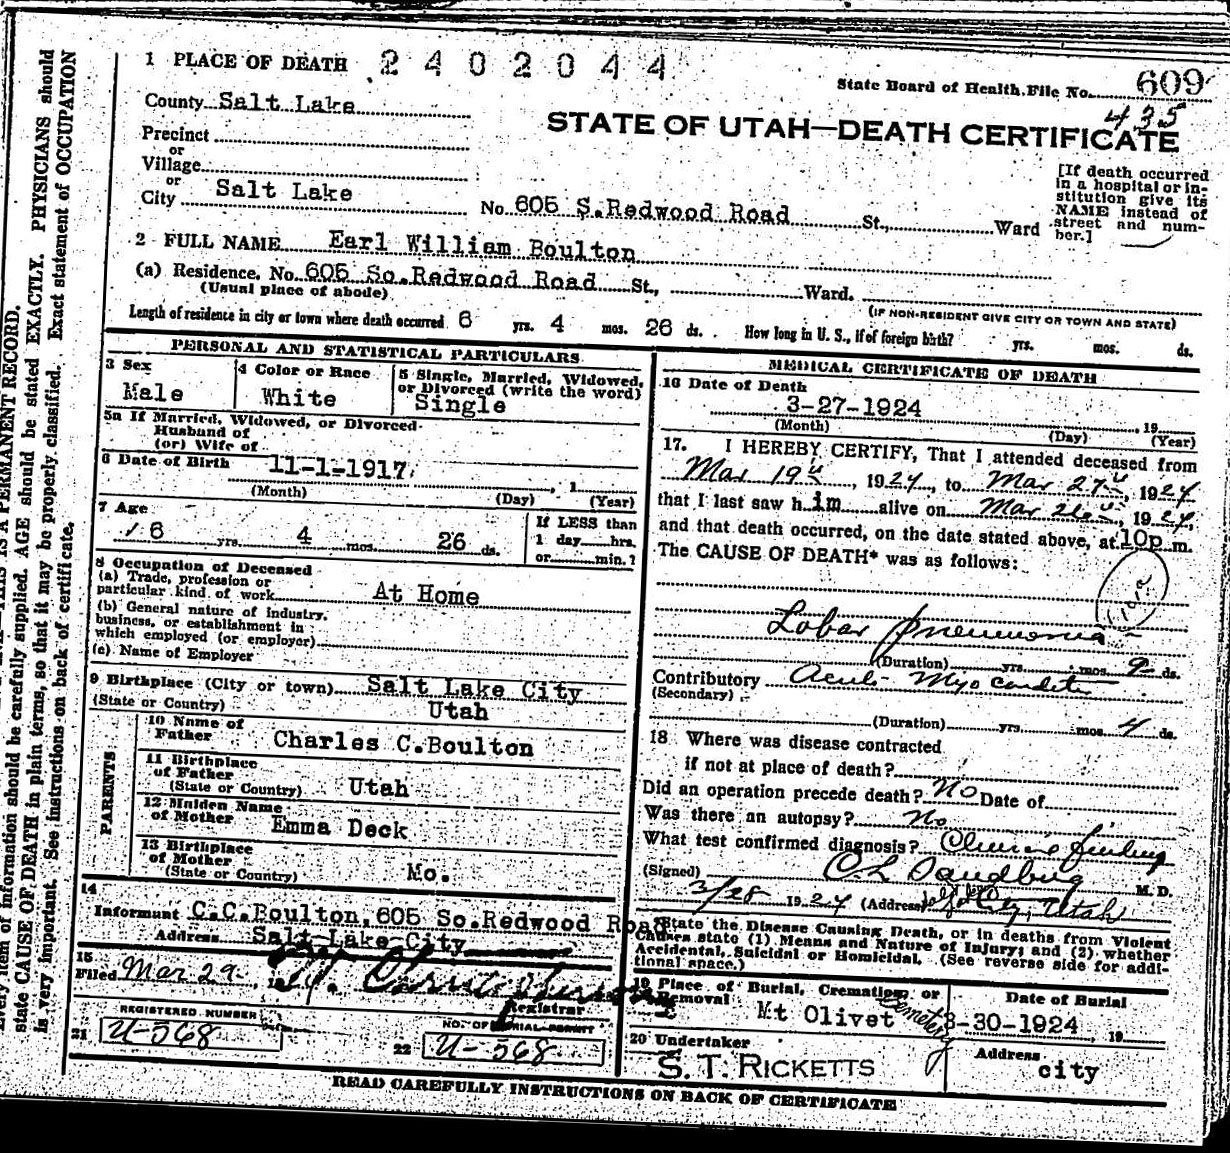 1 PLACE OF DEATH 2402044
State Board of Health File No. 609
435
County Salt Lake
STATE OF UTAH—DEATH CERTIFICATE
Precinct
or
Village
or
City Salt Lake No. 605 S. Redwood Road St., Ward
[If death occurred in a hospital or institution give its NAME instead of street and number.]
2 FULL NAME Earl William Boulton
(a) Residence. No. 605 So. Redwood Road St., Ward.
(Usual place of abode)
(IF NON-RESIDENT GIVE CITY OR TOWN AND STATE)
Length of residence in city or town where death occurred 6 yrs. 4 mos. 26 ds. How long in U. S., if of foreign birth? yrs. mos. ds.
PERSONAL AND STATISTICAL PARTICULARS
3 Sex
Male
4 Color or Race
White
5 Single, Married, Widowed,
or Divorced (write the word)
Single
5a If Married, Widowed, or Divorced
Husband of
(or) Wife of
6 Date of Birth 11-1-1917, 1
(Month) (Day) (Year)
7 Age
6 yrs. 4 mos. 26 ds.
If LESS than
1 day hrs.
or min.?
8 Occupation of Deceased
(a) Trade, profession or
particular kind of work At Home
(b) General nature of industry,
business, or establishment in
which employed (or employer)
(c) Name of Employer
9 Birthplace (City or town) Salt Lake City
(State or Country) Utah
PARENTS
10 Name of
Father Charles C. Boulton
11 Birthplace
of Father
(State or Country) Utah
12 Maiden Name
of Mother Emma Deck
13 Birthplace
of Mother
(State or Country) Mo.
14
Informant C.C. Boulton, 605 So. Redwood Road
Address Salt Lake City
15
Filed Mar 29
Registrar
REGISTERED NUMBER
21 U-568
NO. OF BURIAL PERMIT
22 U-568
MEDICAL CERTIFICATE OF DEATH
16 Date of Death
3-27-1924, 19
(Month) (Day) (Year)
17. I HEREBY CERTIFY, That I attended deceased from
Mar 19, 1924, to Mar 27, 1924
that I last saw him alive on Mar 26, 1924,
and that death occurred, on the date stated above, at 10p m.
The CAUSE OF DEATH* was as follows:
Lobar pneumonia
(Duration) yrs. mos. 9 ds.
Contributory Acute Myocarditis
(Secondary)
(Duration) yrs. mos. 4 ds.
18 Where was disease contracted
if not at place of death?
Did an operation precede death? No Date of
Was there an autopsy? No
What test confirmed diagnosis? Clinical finding
(Signed) M. D.
3/28 1924 (Address) City, Utah
*State the Disease Causing Death, or in deaths from Violent
Causes state (1) Means and Nature of Injury; and (2) whether
Accidental, Suicidal or Homicidal. (See reverse side for addi-
tional space.)
19 Place of Burial, Cremation, or
Removal
Mt Olivet Cemetery
Date of Burial
3-30-1924, 19
20 Undertaker
S. T. RICKETTS
Address
city
READ CAREFULLY INSTRUCTIONS ON BACK OF CERTIFICATE
THIS IS A PERMANENT RECORD.
Every item of information should be carefully supplied. AGE should be stated EXACTLY. PHYSICIANS should
state CAUSE OF DEATH in plain terms, so that it may be properly classified. Exact statement of OCCUPATION
is very important. See instructions on back of certificate.